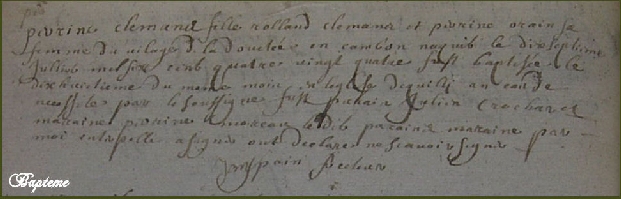 perrine clemance fille rolland clemance et perrine orain sa
femme du vilage de la douetee en cambon naquit le dixseptieme
Juillet mil six cent quatre vingt quatre fust baptisee le
dixhuictieme du mesme mois en leglise de quilly au cas de
necessite par le soussigne fust parain Jullien Crochard
maraine perrine moreau ledit parain maraine par
moi interpelle a signer ont declare ne scavoir signer
recteur
Bapteme